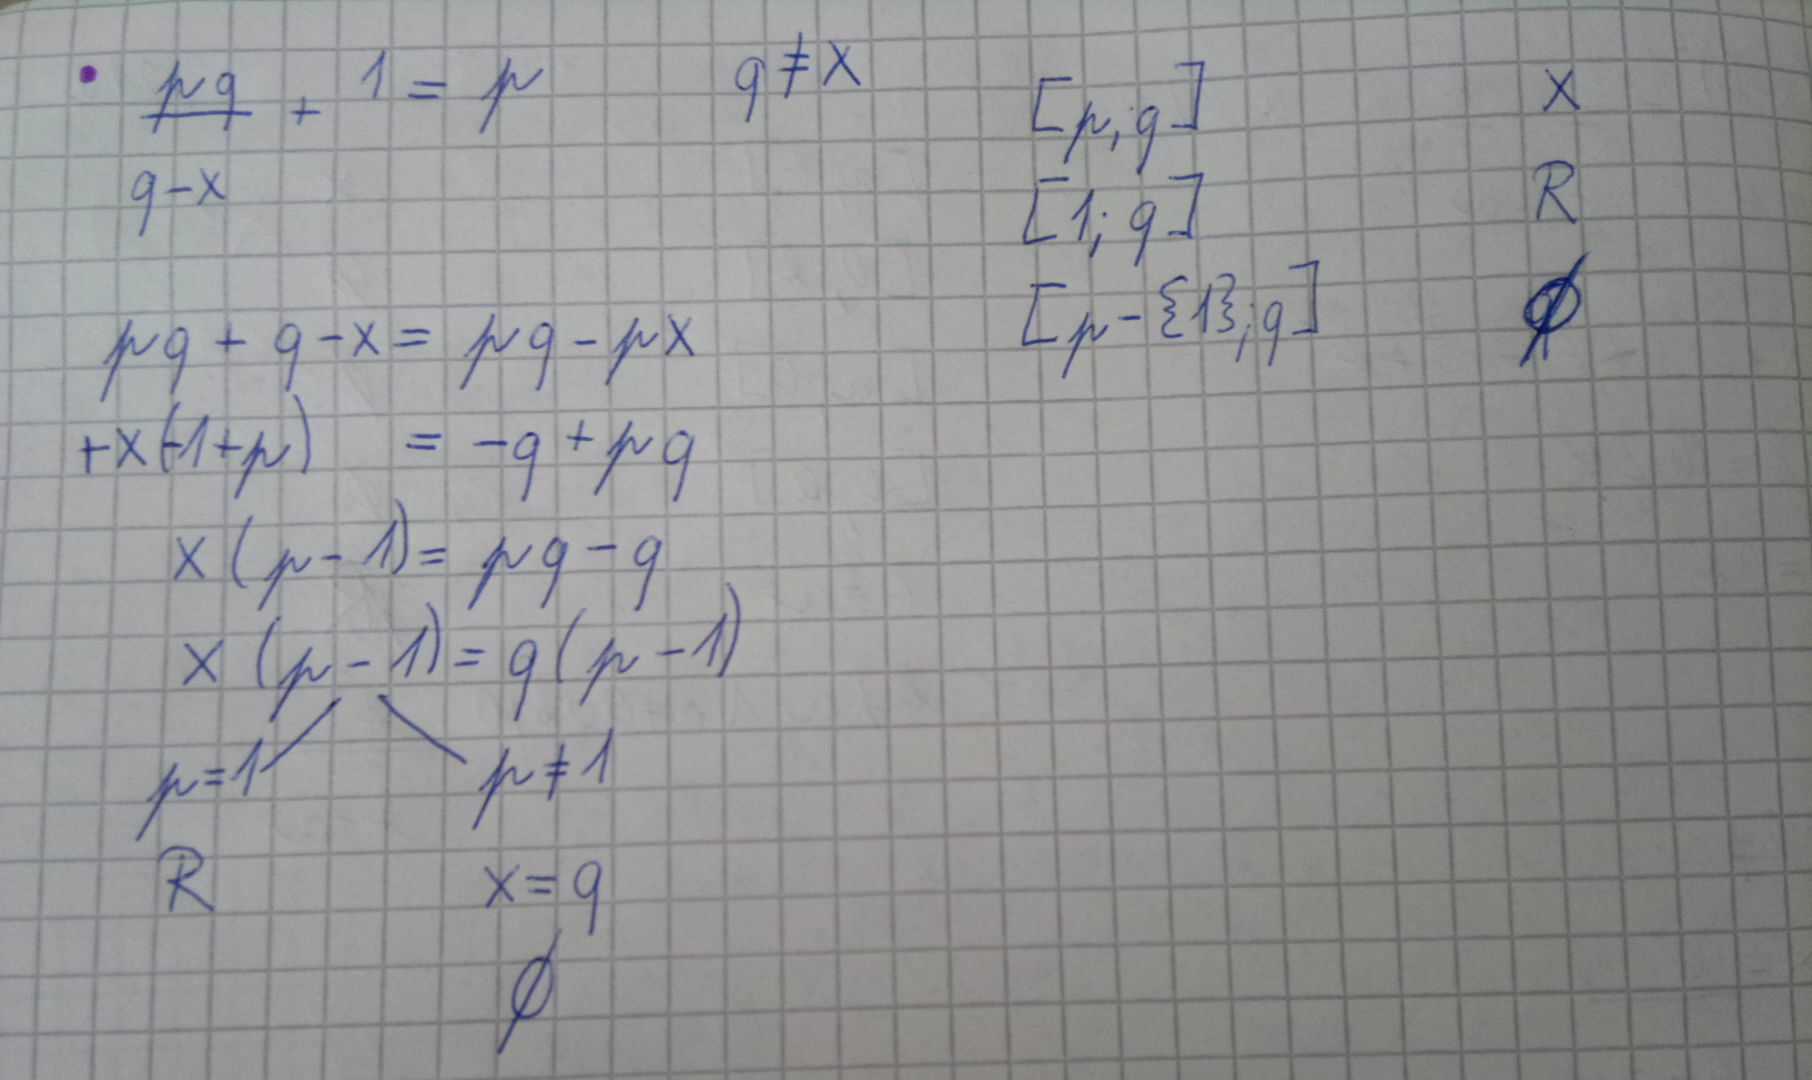 pq + 1 = p q ≠ x
q-x
pq + q - x = pq - px
+x(-1+p) = -q + pq
x (p - 1) = pq - q
x (p - 1) = q (p - 1)
p = 1 p ≠ 1
R x = q
∅
[p; q] x
[1; q] R
[p - {1}; q] ∅